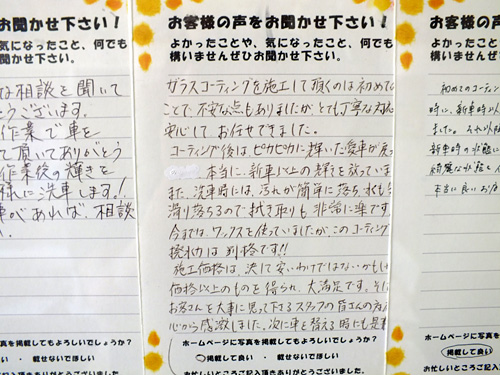 聞かせ下さい!
気になったこと、何でも
お聞かせ下さい。
な相談を聞いて
とうございます。
作業で車を
て頂いてありがとう
作業後の輝きを
様に洗車します!
事があれば、相談
を掲載してもよろしいでしょうか?
い ・ 載せないでほしい
ご記入頂きありがとうございました。
お客様の声をお聞かせ下さい!
よかったことや、気になったこと、何でも
構いませんぜひお聞かせ下さい。
ガラスコーティングを施工して頂くのは初めて
ことで、不安な点もありましたが、とても丁寧な対応
安心して、お任せできました。
コーティング後はピカピカに輝いた愛車が戻
本当に、新車以上の輝きを放っていま
また、洗車時には、汚れが簡単に落ち、水も
滑り落ちるので拭き取りも非常に楽です。
今までは、ワックスを使っていましたが、このコーティング
撥水力は別格です!!
施工価格は、決して安いわけではないかもし
価格以上のものを得られ、大満足です。そ
お客さんを大事に思って下さるスタッフの皆さんの
心から感激しました。次に車を替える時にも是非
ホームページに写真を掲載してもよろしいでしょうか?
掲載して良い ・ 載せないでほしい
お忙しいところご記入頂きありがとうございました。
お客様の
よかったことや、
構いませんぜひ
初めてのコーティ
時に、新車時以
ました。それ以
新車時の状態に
綺麗な状態
本当に良いお
ホームページに写
掲載して良
お忙しいところご